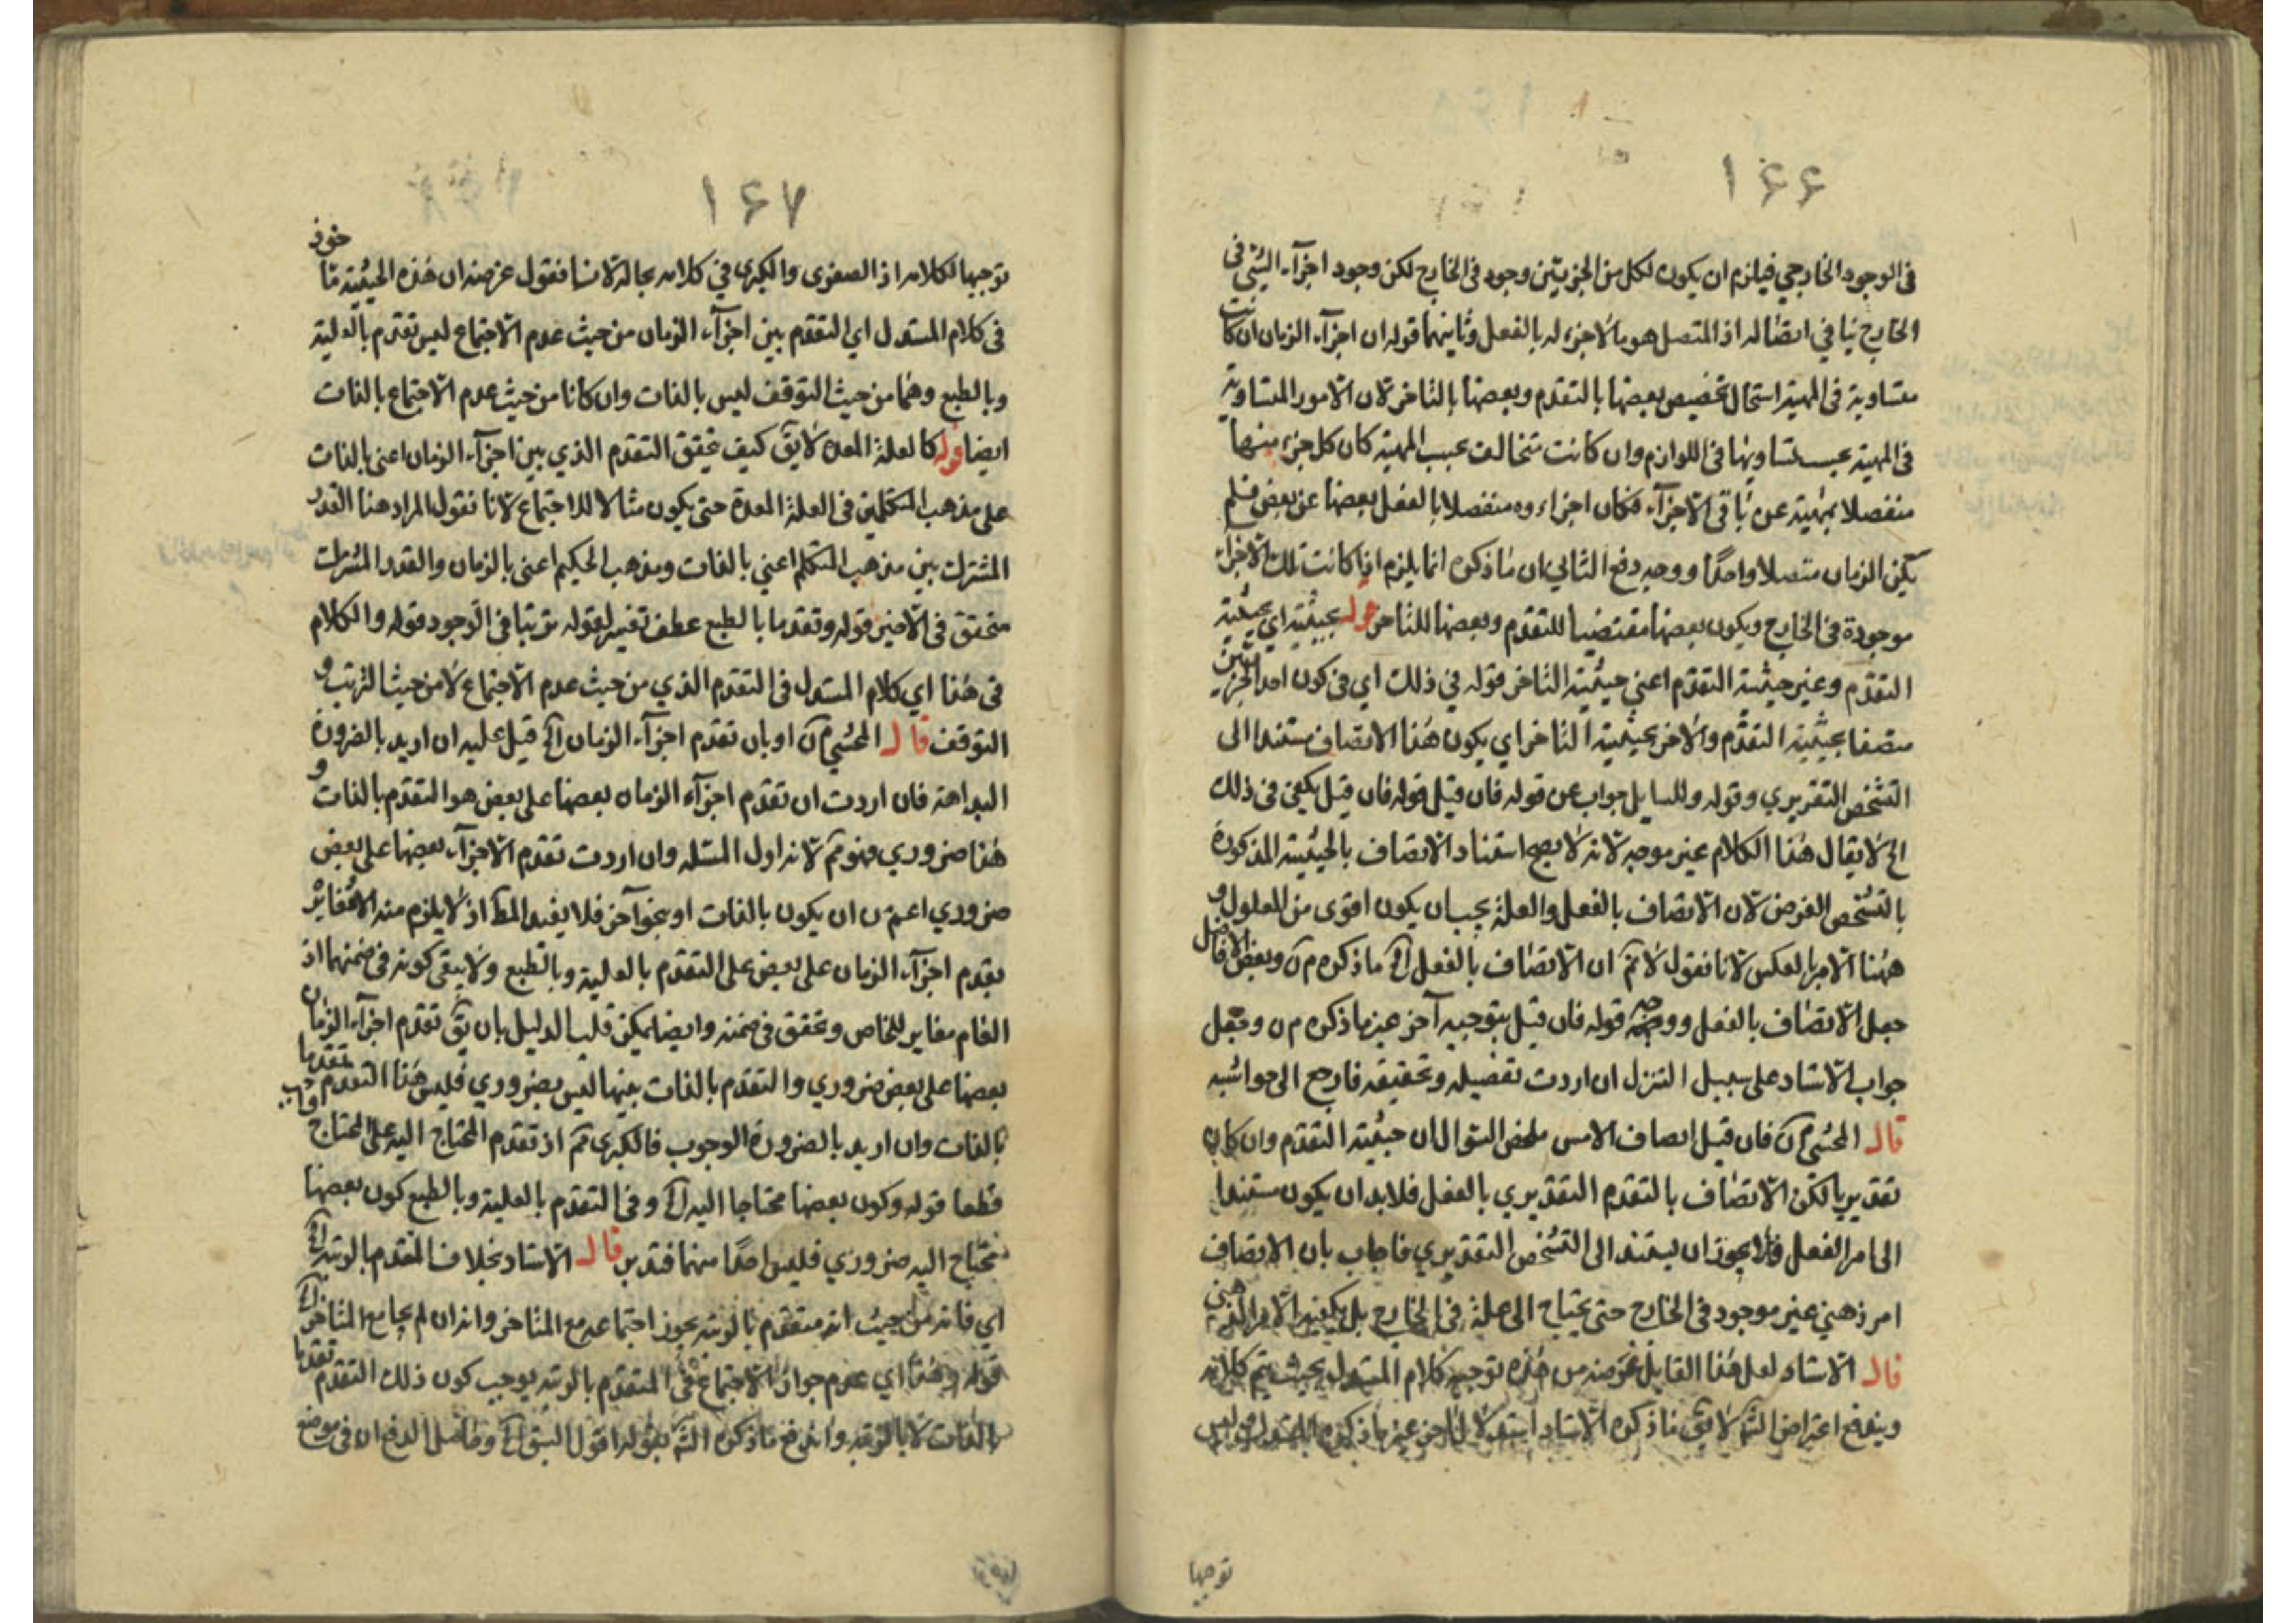 ۱۶۶
فى الوجود الخارجي فيلزم ان يكون لكل من الجزيين وجود فى الخارج لكن وجود اجزآء الشئ فى
الخارج ينافي اتصاله اذ المتصل هو ما لاجزء له بالفعل وثانيهما قوله ان اجزآء الزمان ان كانت
متساوية فى المهية استحال تخصيص بعضها بالتقدم وبعضها بالتاخر لان الامور المتساوية
فى المهية يجب تساويها فى اللوازم وان كانت متخالفة بحسب المهية كان كل جزء منها
منفصلا بمهيته عن باقى الاجزآء فكان اجزاءه منفصلا بالفعل بعضها عن بعض فلم
يكن الزمان متصلا واحدًا ووجه دفع الثاني ان ما ذكره انما يلزم اذا كانت تلك الاجزآء
موجودة فى الخارج ويكون بعضها مقتضيا للتقدم وبعضها للتاخر قوله بحيثية اي بحيثية
التقدم وغير حيثية التقدم اعني حيثية التاخر قوله في ذلك اى فى كون احد الجزئين
متصفا بحيثية التقدم والاخر بحيثية التاخر اي يكون هذا الاتصاف مستندا الى
التشخص التقديري وقوله وللسايل جواب عن قوله فان قيل قوله فان قيل يكفى فى ذلك
الخ لا يقال هذا الكلام غير موجه لانه لا يصح استناد الاتصاف بالحيثية المذكورة
بالتشخص الفرضى لان الاتصاف بالفعل والعلة يجب ان يكون اقوى من المعلول و
ههنا الامر بالعكس لانا نقول لا نم ان الاتصاف بالفعل الخ ما ذكره م ن وبعض الافاضل
جعل الاتصاف بالفعل ووجه قوله فان قيل بتوجيه آخر غير ما ذكره م ن وجعل
جواب الاستاد على سبيل التنزل ان اردت تفصيله وتحقيقه فارجع الى حواشيه
قال المحشى م ن فان قيل اتصاف الامس ملخص السؤال ان حيثية التقدم وان كان
تقديريا لكن الاتصاف بالتقدم التقديري بالفعل فلا بد ان يكون مستندا
الى امر بالفعل فلا يجوز ان يستند الى التشخص التقديري فاجاب بان الاتصاف
امر ذهني غير موجود فى الخارج حتى يحتاج الى علة فى الخارج بل يكفيه الامر الذهني
قال الاستاد لعل هذا القايل غرضه من هذه توجيه كلام المستدل بحيث يتم كلامه
ويندفع اعتراض الش لا يق ما ذكره الاستاد استدلال اخر غير ما ذكره المستدل وليس
توجيها
۱۶۷
توجيها لكلامه اذ الصغرى والكبرى في كلامه بحاله لانا نقول غرضه ان هذه الحيثية ماخوذ
فى كلام المستدل اي التقدم بين اجزآء الزمان من حيث عدم الاجتماع ليس تقدم بالعلية
وبالطبع وهما من حيث التوقف ليس بالذات وان كانا من حيث عدم الاجتماع بالذات
ايضا قوله كالعلة المعدة لا يق كيف تحقق التقدم الذي بين اجزآء الزمان اعنى بالذات
على مذهب المتكلمين فى العلة المعدة حتى يكون مثالا للاجتماع لانا نقول المراد هنا القدر
المشترك بين مذهب المتكلم اعني بالذات ومذهب الحكيم اعنى بالزمان والقدر المشترك
متحقق فى الامثين قوله وتقدما بالطبع عطف تفسير لقوله ترتبا فى الوجود قوله والكلام
فى هذا اي كلام المستدل فى التقدم الذي من حيث عدم الاجتماع لا من حيث الترتب و
التوقف قال المحشى م ن او بان تقدم اجزآء الزمان الخ قيل عليه ان اريد بالضرورة
البداهة فان اردت ان تقدم اجزآء الزمان بعضها على بعض هو التقدم بالذات و
هذا ضروري فهو مم لانه اول المسئله وان اردت تقدم الاجزآء بعضها على بعض
ضروري اعم من ان يكون بالذات او بنحو آخر فلا يفيد المط اذ لا يلزم منه الا مغايرة
تقدم اجزآء الزمان على بعض على التقدم بالعلية وبالطبع ولا ينفى كونه فى ضمنهما اذ
العام مغاير للخاص وتحقق فى ضمنه وايضا يمكن قلب الدليل بان يق تقدم اجزآء الزمان
بعضها على بعض ضروري والتقدم بالذات بينها ليس بضروري فليس هذا التقدم تقدما
بالذات وان اريد بالضرورة الوجوب فالكبرى مم اذ تقدم المحتاج اليه على المحتاج واجب
قطعا قوله وكون بعضها محتاجا اليه الخ وفى التقدم بالعلية وبالطبع كون بعضها
محتاج اليه ضروري فليس احدًا منهما فتدبر قال الاستاد بخلاف المتقدم بالرتبة الخ
اي فانه من حيث انه متقدم بالرتبة يجوز اجتماعه مع المتاخر وانه ان لم يجامع المتاخر الخ
قوله وهذا اي عدم جواز الاجتماع فى المتقدم بالرتبة يوجب كون ذلك التقدم تقدما
بالذات لا بالرتبة واندفع ما ذكره الش بقوله اقول السبق الخ وحاصل الدفع ان فى موضع